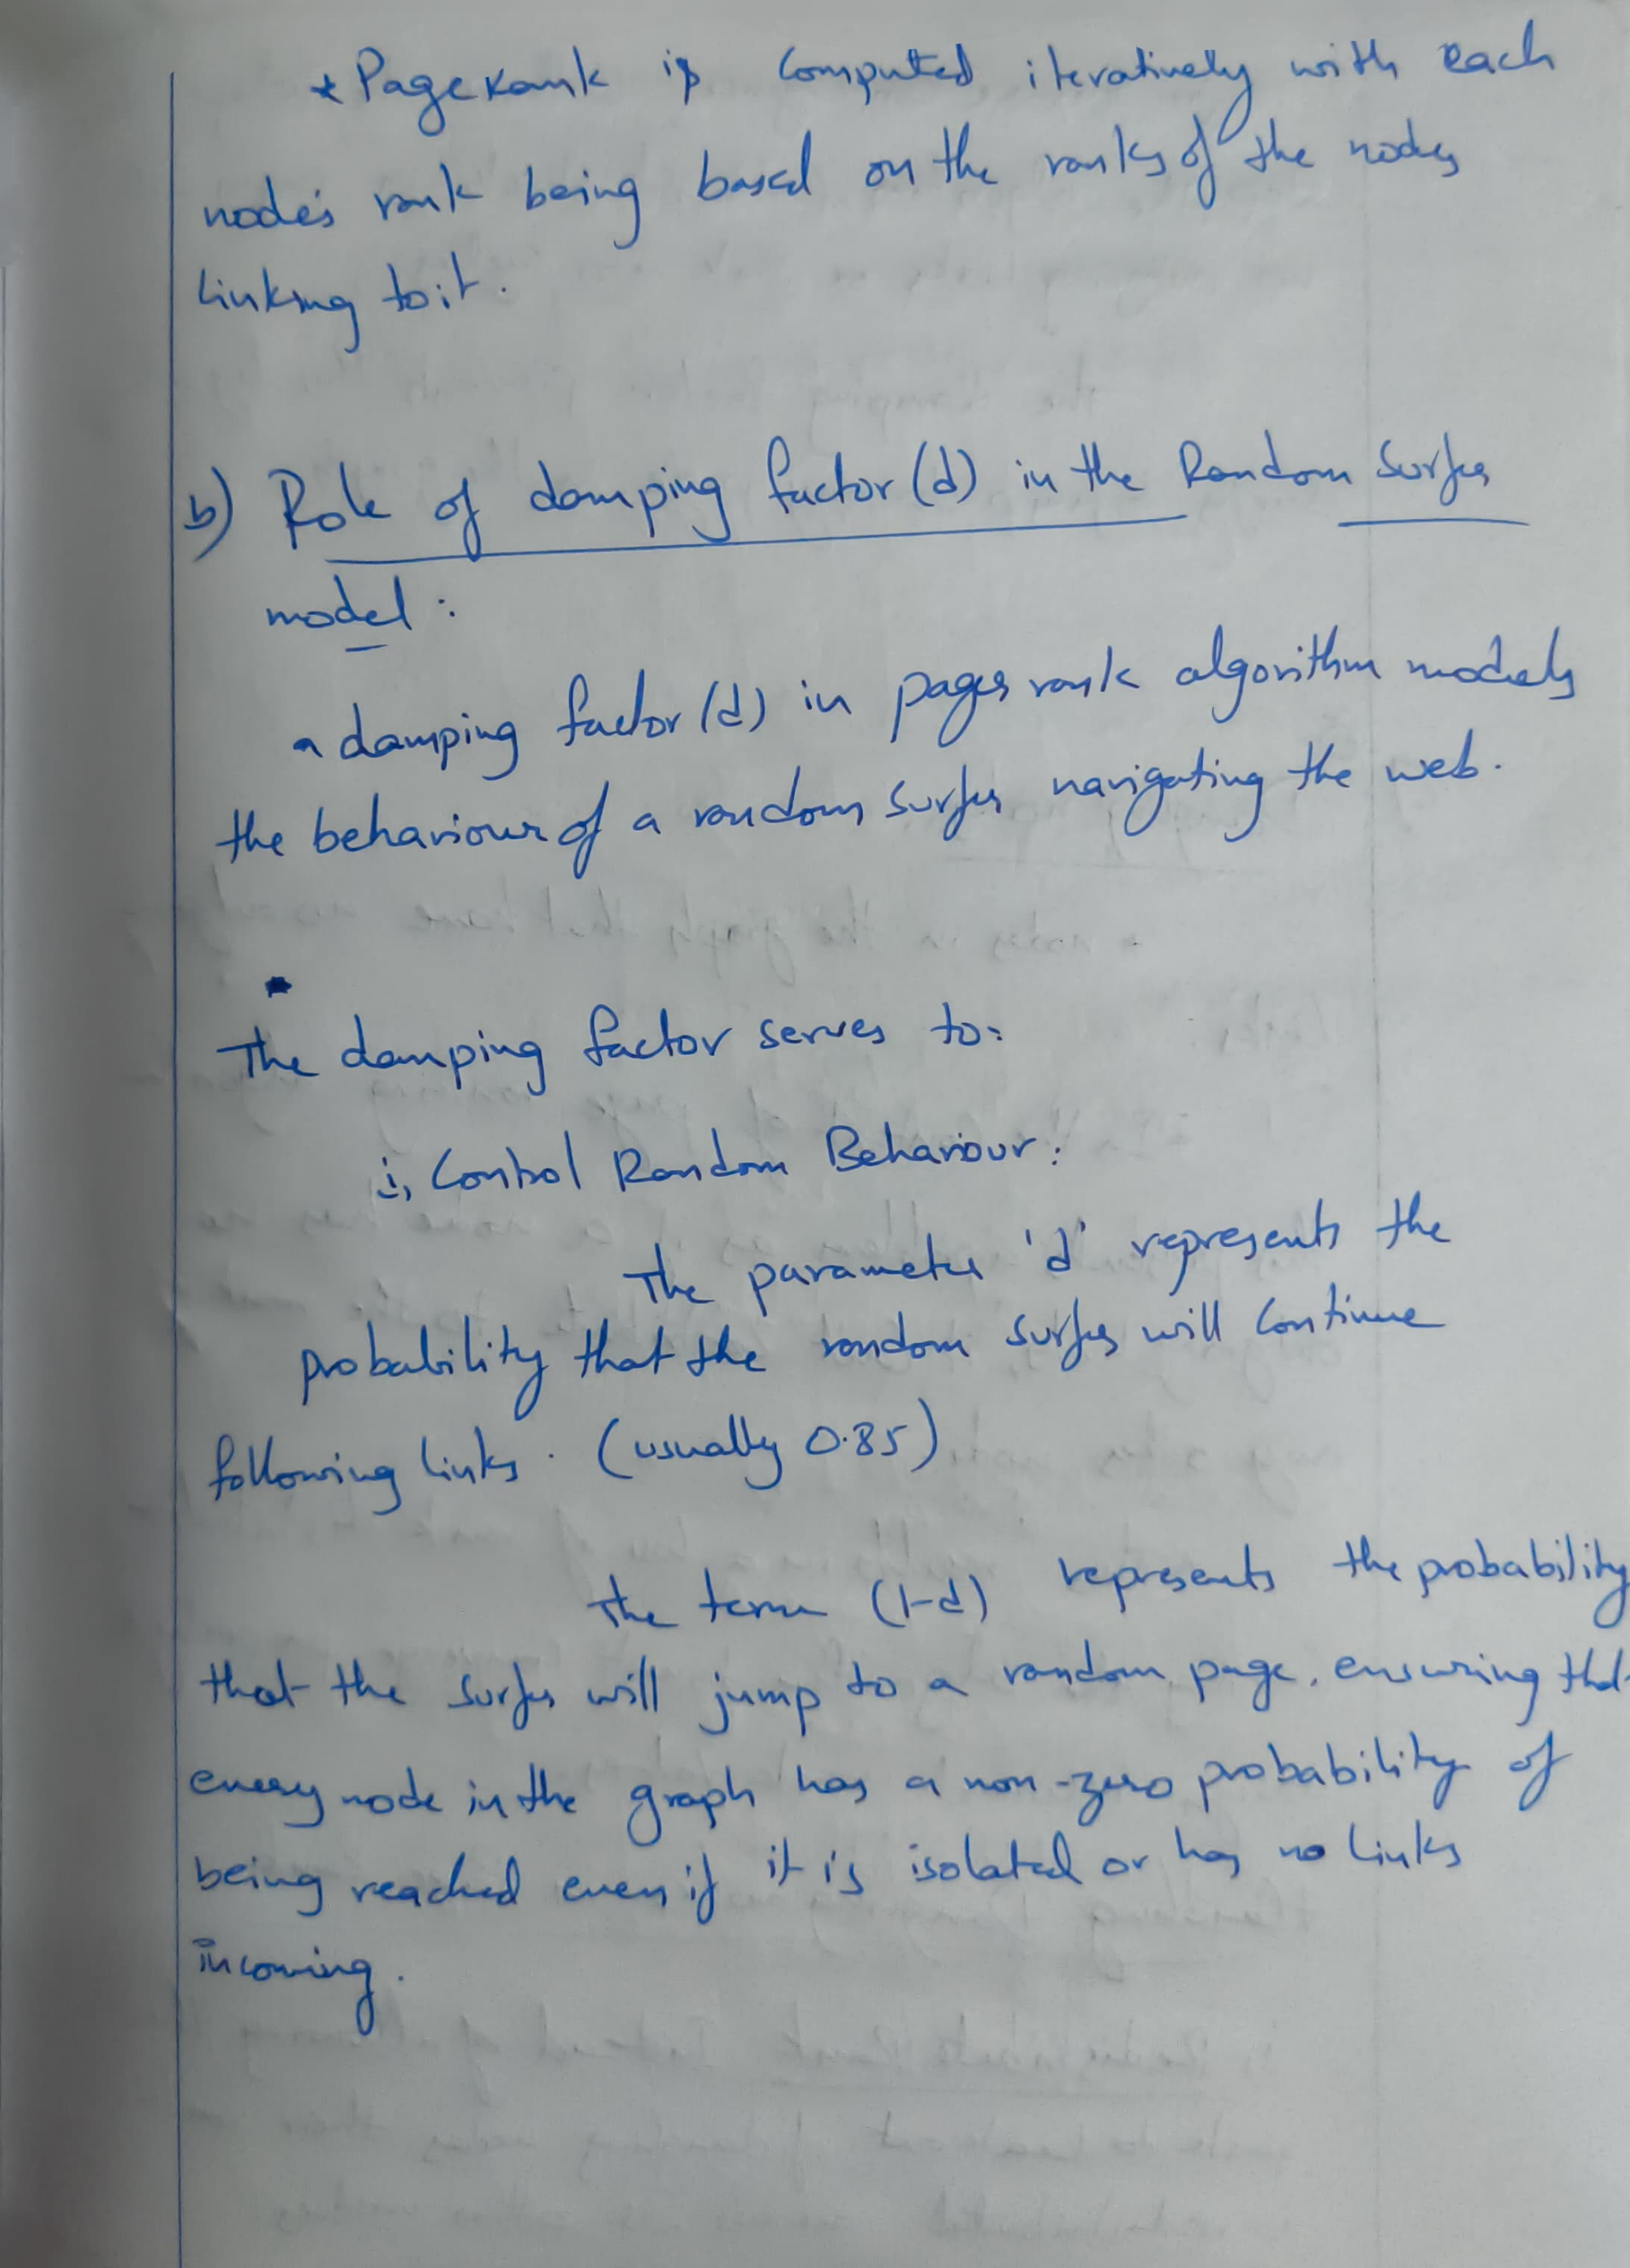 * PageRank is computed iteratively with each
node's rank being based on the ranks of the nodes
linking to it.
b) Role of damping factor (d) in the Random Surfer
model :
a damping factor (d) in pages rank algorithm models
the behaviour of a random surfer navigating the web.
The damping factor serves to:
i, Control Random Behaviour:
The parameter 'd' represents the
probability that the random surfer will continue
following links. (usually 0.85)
The term (1-d) represents the probability
that the surfer will jump to a random page, ensuring that
every node in the graph has a non-zero probability of
being reached even if it is isolated or has no links
incoming.